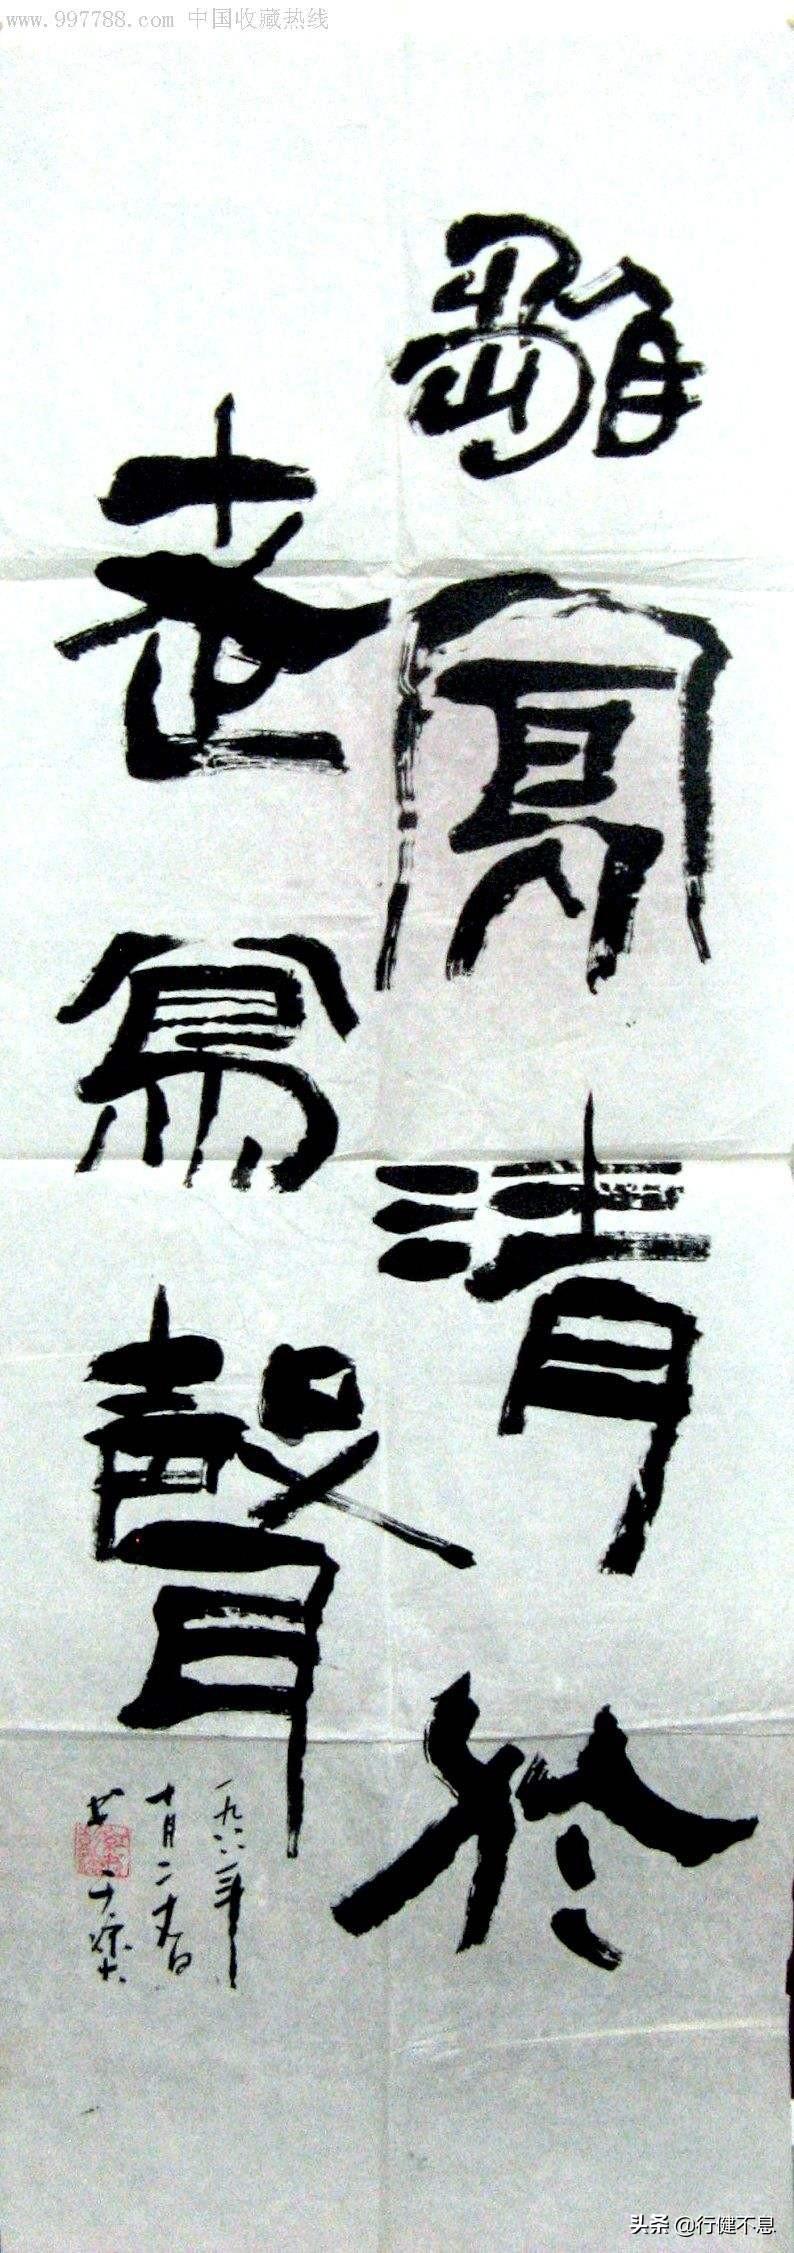 www.997788.com 中国收藏热线
雛鳳清於
老鳳聲
十月二
头条 @行健不息